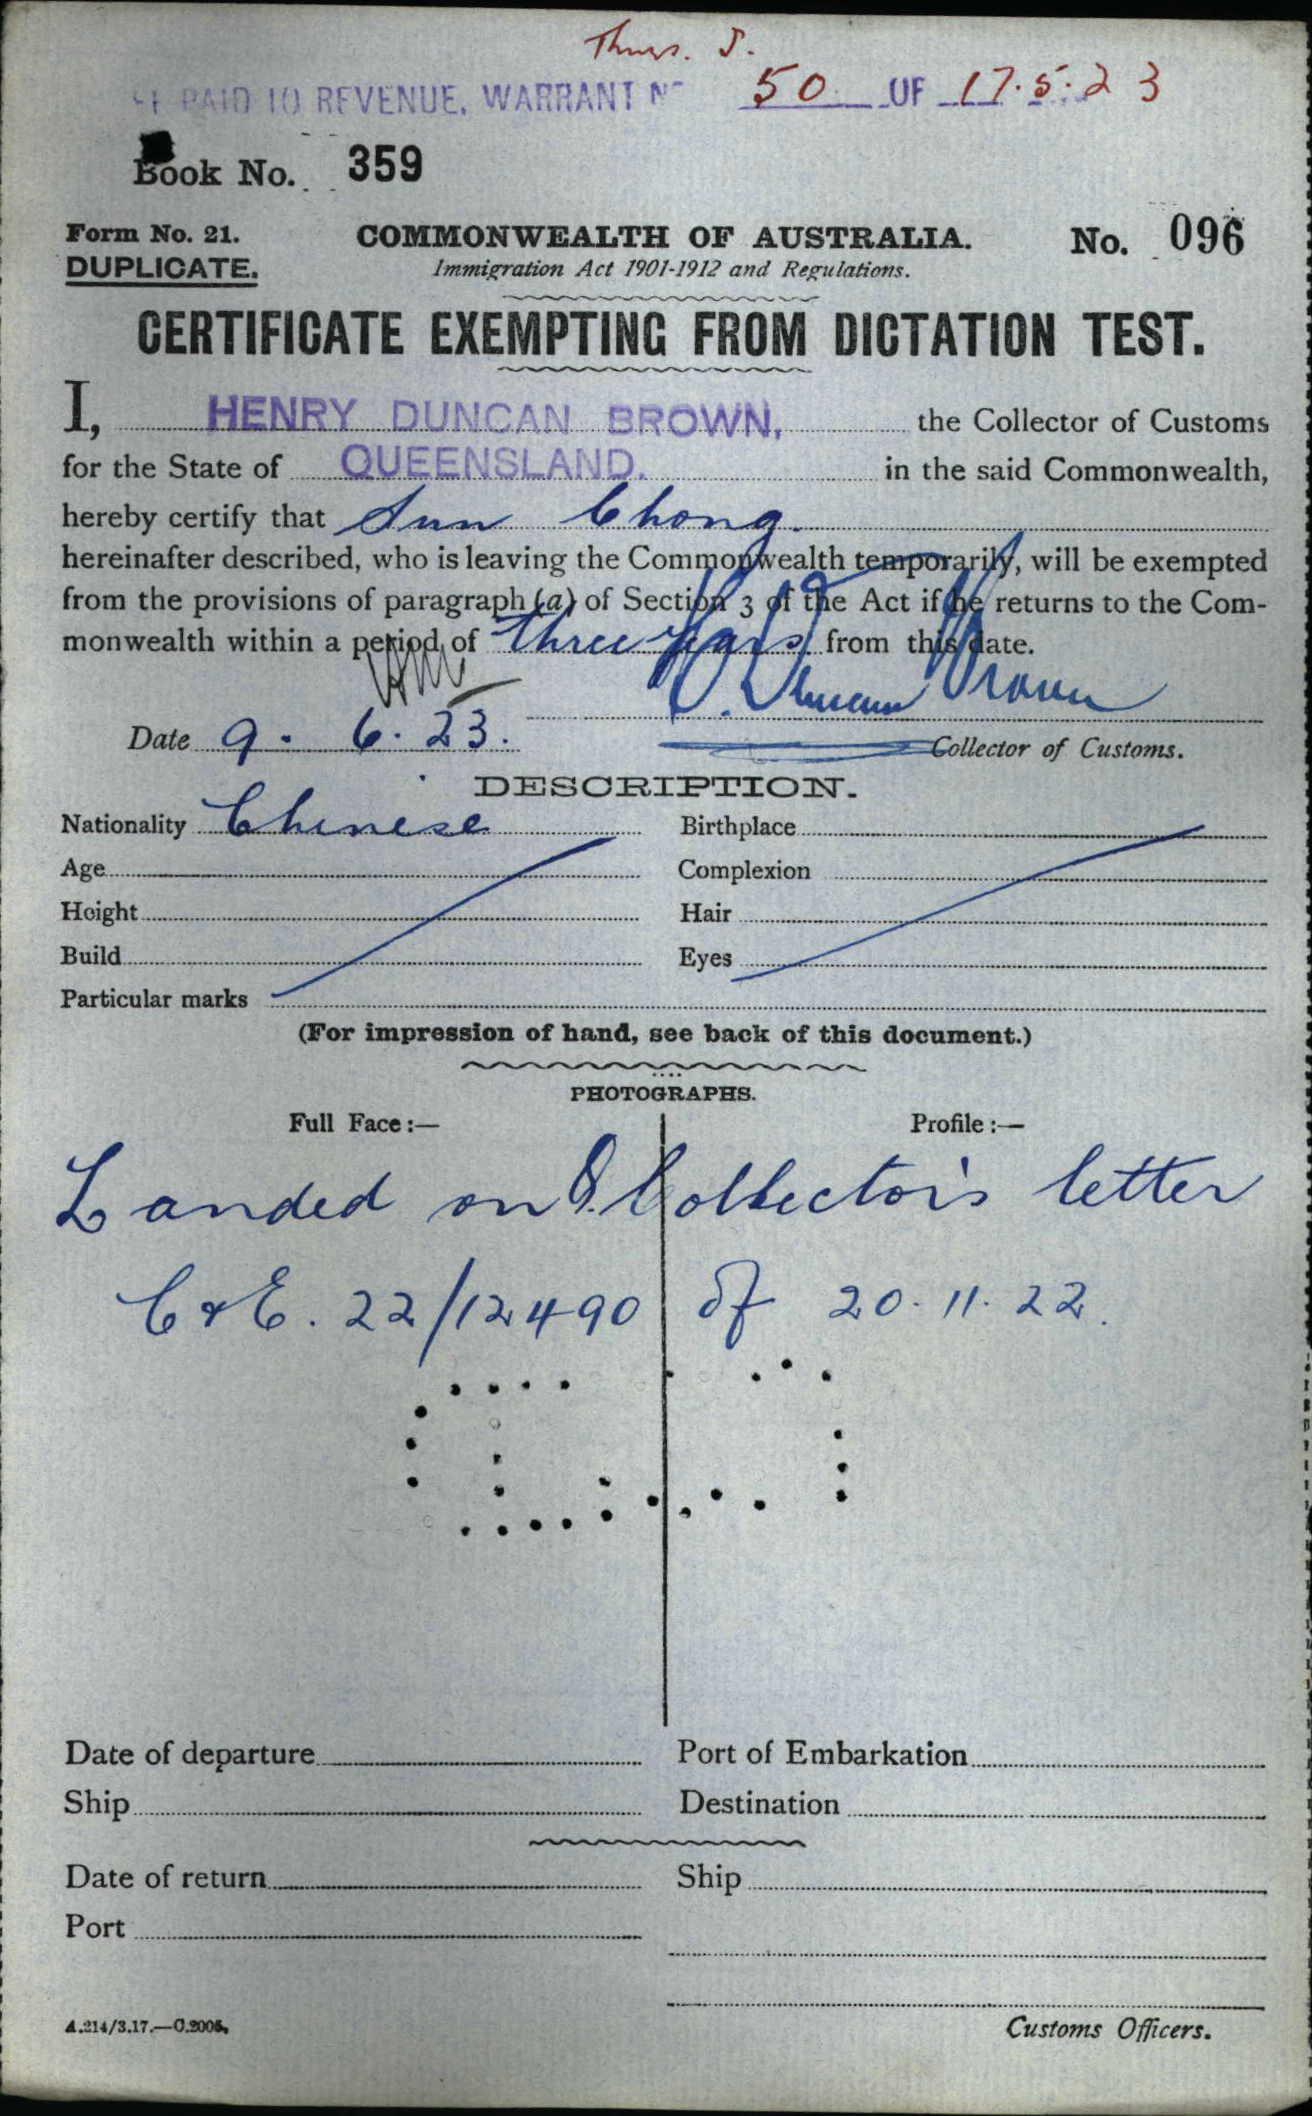 Thurs. I.
£1 PAID TO REVENUE, WARRANT No 50 OF 17.5.23
Book No. 359
Form No. 21. COMMONWEALTH OF AUSTRALIA. No. 096
DUPLICATE. Immigration Act 1901-1912 and Regulations.
CERTIFICATE EXEMPTING FROM DICTATION TEST.
I, HENRY DUNCAN BROWN, the Collector of Customs
for the State of QUEENSLAND. in the said Commonwealth,
hereby certify that Sun Chong.
hereinafter described, who is leaving the Commonwealth temporarily, will be exempted
from the provisions of paragraph (a) of Section 3 of the Act if he returns to the Com-
monwealth within a period of three years from this date.
H. Duncan Brown
Date 9. 6. 23. Collector of Customs.
DESCRIPTION.
Nationality Chinese Birthplace
Age Complexion
Height Hair
Build Eyes
Particular marks
(For impression of hand, see back of this document.)
PHOTOGRAPHS.
Full Face:— Profile:—
Landed on Collector's letter
C & E. 22/12490 of 20.11.22.
Date of departure Port of Embarkation
Ship Destination
Date of return Ship
Port
A.214/3.17.—C.2005. Customs Officers.